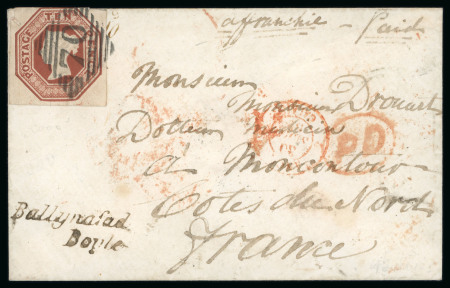 affranchie - Paid
POSTAGE
Monsieur
Monsieur Drouart
Docteur medecin
a Moncontour
PD
Cotes du Nord
France
Ballynafad
Boyle